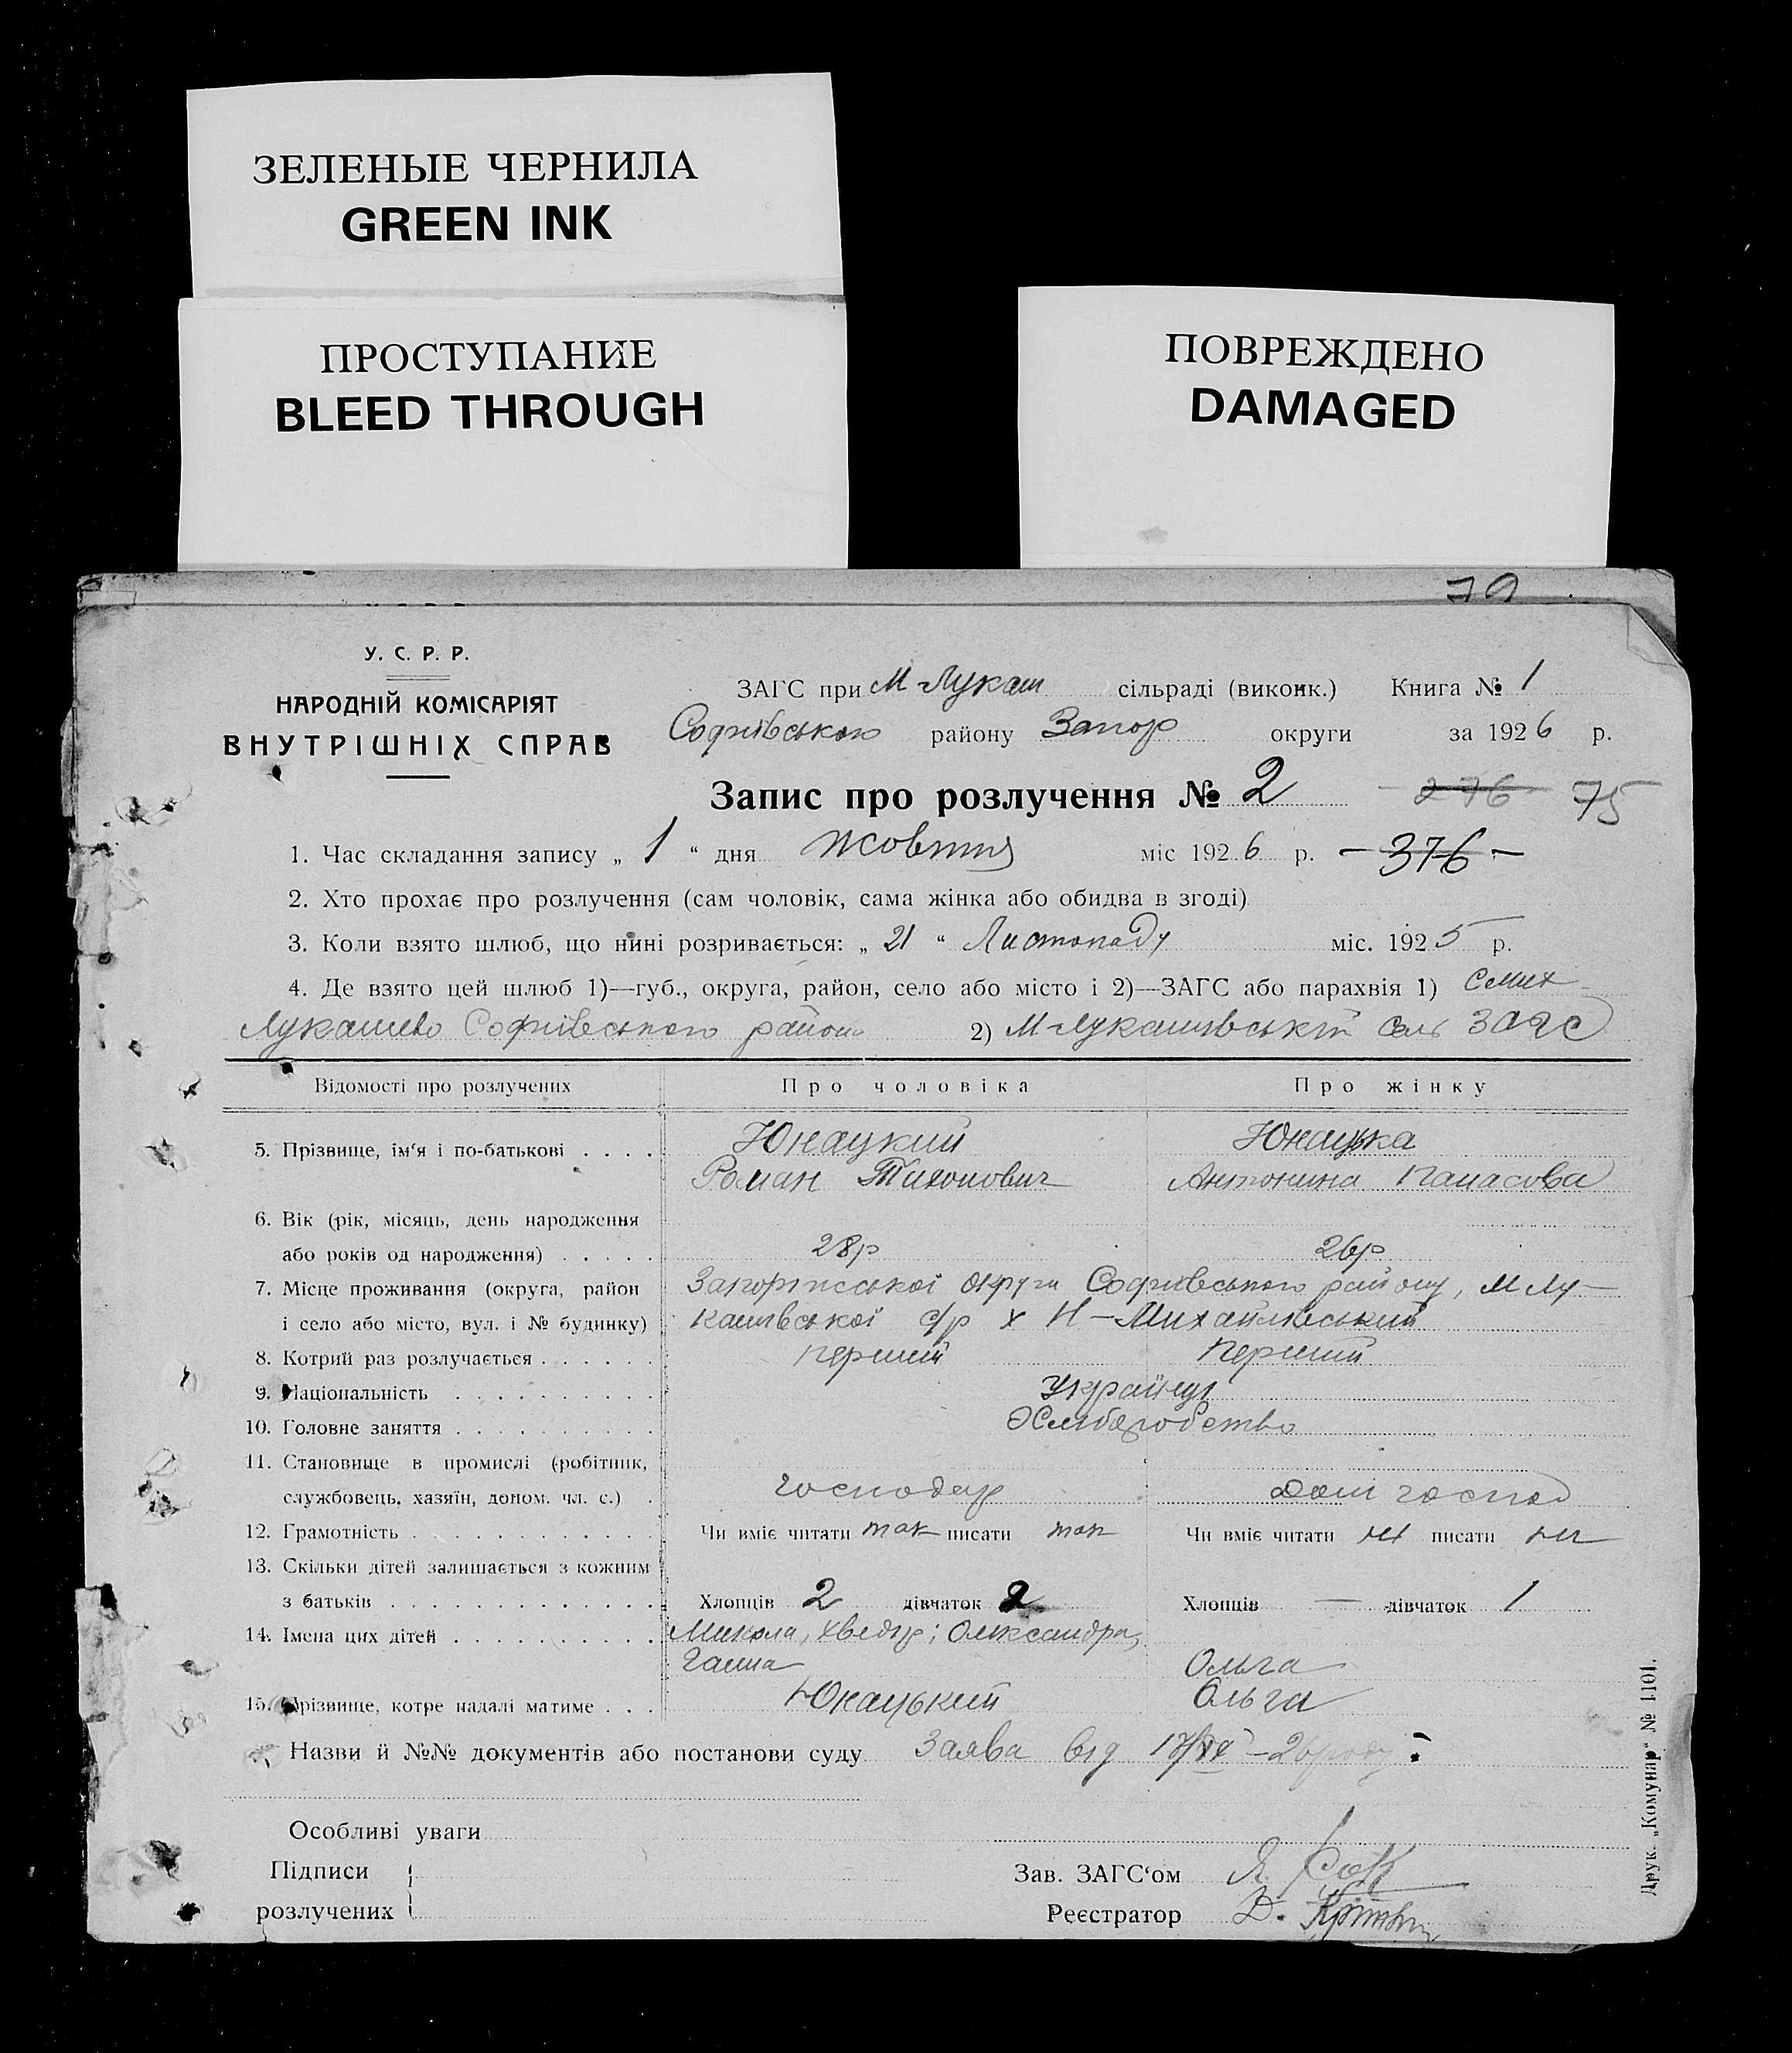 ЗЕЛЕНЫЕ ЧЕРНИЛА
GREEN INK
ПРОСТУПАНИЕ
BLEED THROUGH
ПОВРЕЖДЕНО
DAMAGED
У. С. Р. Р.
НАРОДНІЙ КОМІСАРІЯТ
ВНУТРІШНІХ СПРАВ
ЗАГС при М Лукаш сільраді (виконк.) Книга № 1
Софиївського району Запор округи за 1926 р.
Запис про розлучення № 2 276 75
1. Час складання запису „ 1 “ дня Жовтня міс 1926 р. — 376 —
2. Хто прохає про розлучення (сам чоловік, сама жінка або обидва в згоді)
3. Коли взято шлюб, що нині розривається: „ 21 “ Листопаду міс. 1925 р.
4. Де взято цей шлюб 1)—губ., округа, район, село або місто і 2)—ЗАГС або парахвія 1)
Лукашево Софиївського району 2) М-Лукашивській ЗАГС
Відомості про розлучених Про чоловіка Про жінку
5. Прізвище, ім‘я і по-батькові . . . . Юнацкий Юнацька
Роман Тихонович Антонина Панасова
6. Вік (рік, місяць, день народження
або років од народження) . . . . . 28р 26р
7. Місце проживання (округа, район Запоріжської округи Софиївського району, М Лу-
і село або місто, вул. і № будинку) кашівської с/р х Н-Михайлівський
8. Котрий раз розлучається . . . . . . перший перший
9. Національність . . . . . . . . . . Українці
10. Головне заняття . . . . . . . . . . Хліборобство
11. Становище в промислі (робітник,
службовець, хазяїн, допом. чл. с.) . господар Дом господ
12. Грамотність . . . . . . . . . . . . Чи вміє читати так писати так Чи вміє читати ні писати ні
13. Скільки дітей залишається з кожним
з батьків . . . . . . . . . . . . . Хлопців 2 дівчаток 2 Хлопців — дівчаток 1
14. Імена цих дітей . . . . . . . . . . Микола, Хведір; Олександра,
Ганна Ольга
15. Прізвище, котре надалі матиме . . . Юнацький Ольга
Назви й №№ документів або постанови суду Заява від 17/IX-26 року
Особливі уваги
Підписи
розлучених
Зав. ЗАГС‘ом
Реєстратор Д.
Друк. „Комунар“ № 1101.